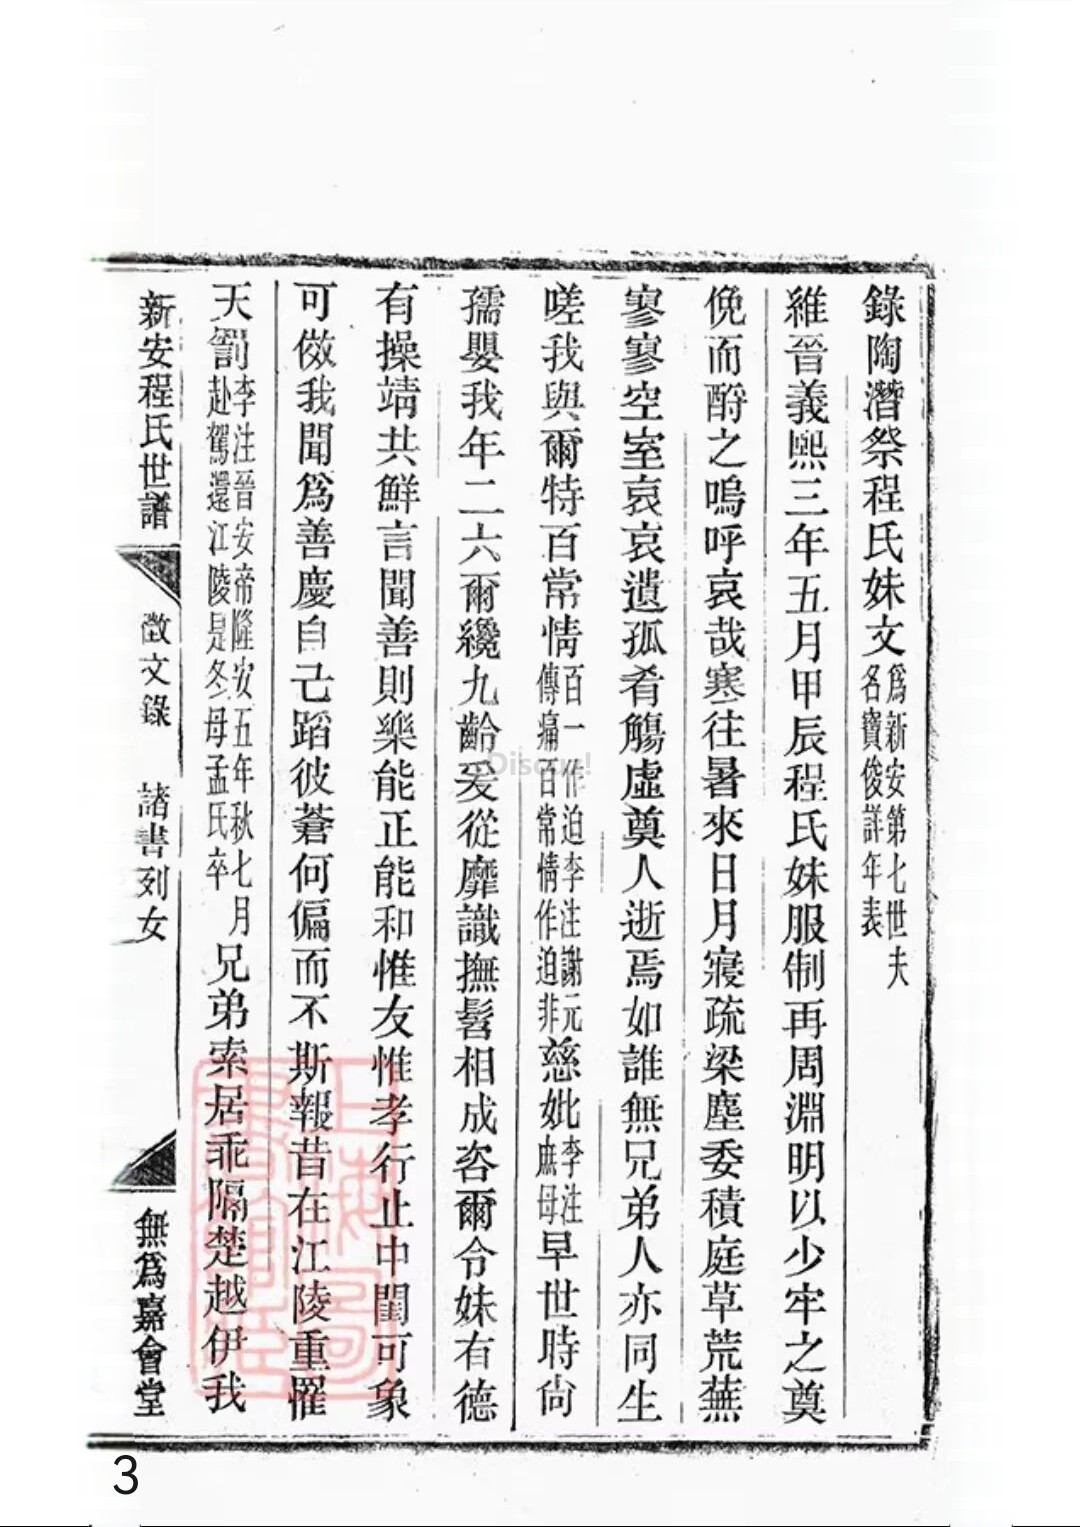 錄陶潛祭程氏妹文為新安第七世夫名寶俊詳年表
維晉義熙三年五月甲辰程氏妹服制再周淵明以少牢之奠
俛而酹之嗚呼哀哉寒往暑來日月寖疏梁塵委積庭草荒蕪
寥寥空室哀哀遺孤肴觴虛奠人逝焉如誰無兄弟人亦同生
嗟我與爾特百常情百一作迫李注謝元傳痛百常情作迫非慈妣李注庶母早世時尚
孺嬰我年二六爾纔九齡爰從靡識撫髫相成咨爾令妹有德
有操靖共鮮言聞善則樂能正能和惟友惟孝行止中閨可象
可傚我聞爲善慶自己蹈彼蒼何偏而不斯報昔在江陵重罹
天罰李注晉安帝隆安五年秋七月赴駕還江陵是冬母孟氏卒兄弟索居乖隔楚越伊我
新安程氏世譜 徵文錄 諸書列女 無爲嘉會堂
上海圖書館藏
Discuz!
3